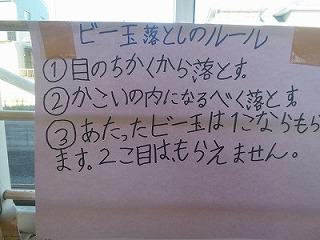 ビー玉落としのルール
①目のちかくから落とす。
②かこいの内になるべく落とす。
③あたったビー玉は1こならもら
ます。2こ目は、もらえません。